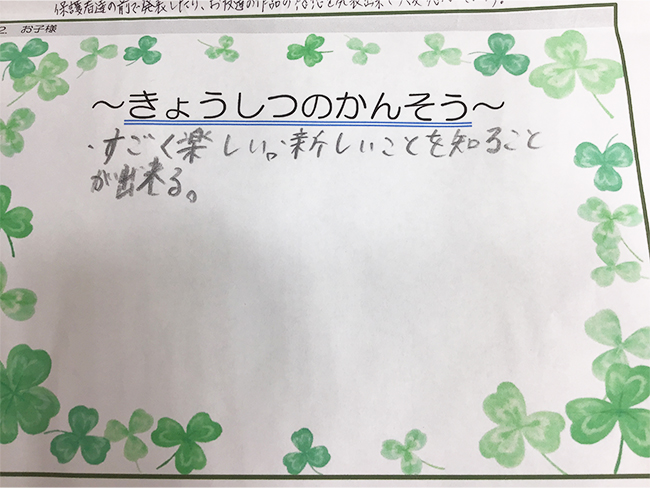 保護者達の前で発表したり、お友達の作品の
2. お子様
～きょうしつのかんそう～
・すごく楽しい。・新しいことを知ること
が出来る。